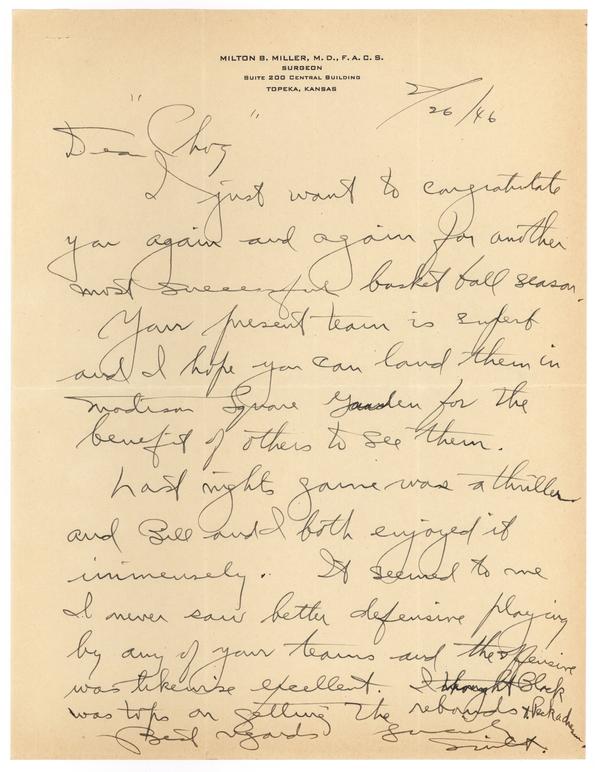 MILTON B. MILLER, M. D., F. A. C. S.
SURGEON
SUITE 200 CENTRAL BUILDING
TOPEKA, KANSAS
2/26/46
Dear "Phog"
I just want to congratulate
you again and again for another
most successful basket ball season.
Your present team is superb
and I hope you can land them in
Madison Square Garden for the
benefit of others to see them.
Last nights game was a thriller
and Bill and I both enjoyed it
immensely. It seemed to me
I never saw better defensive playing
by any of your teams and the offensive
was likewise excellent. I thought Black
was tops on getting the rebounds &
Best regards Sincerely
Milt.